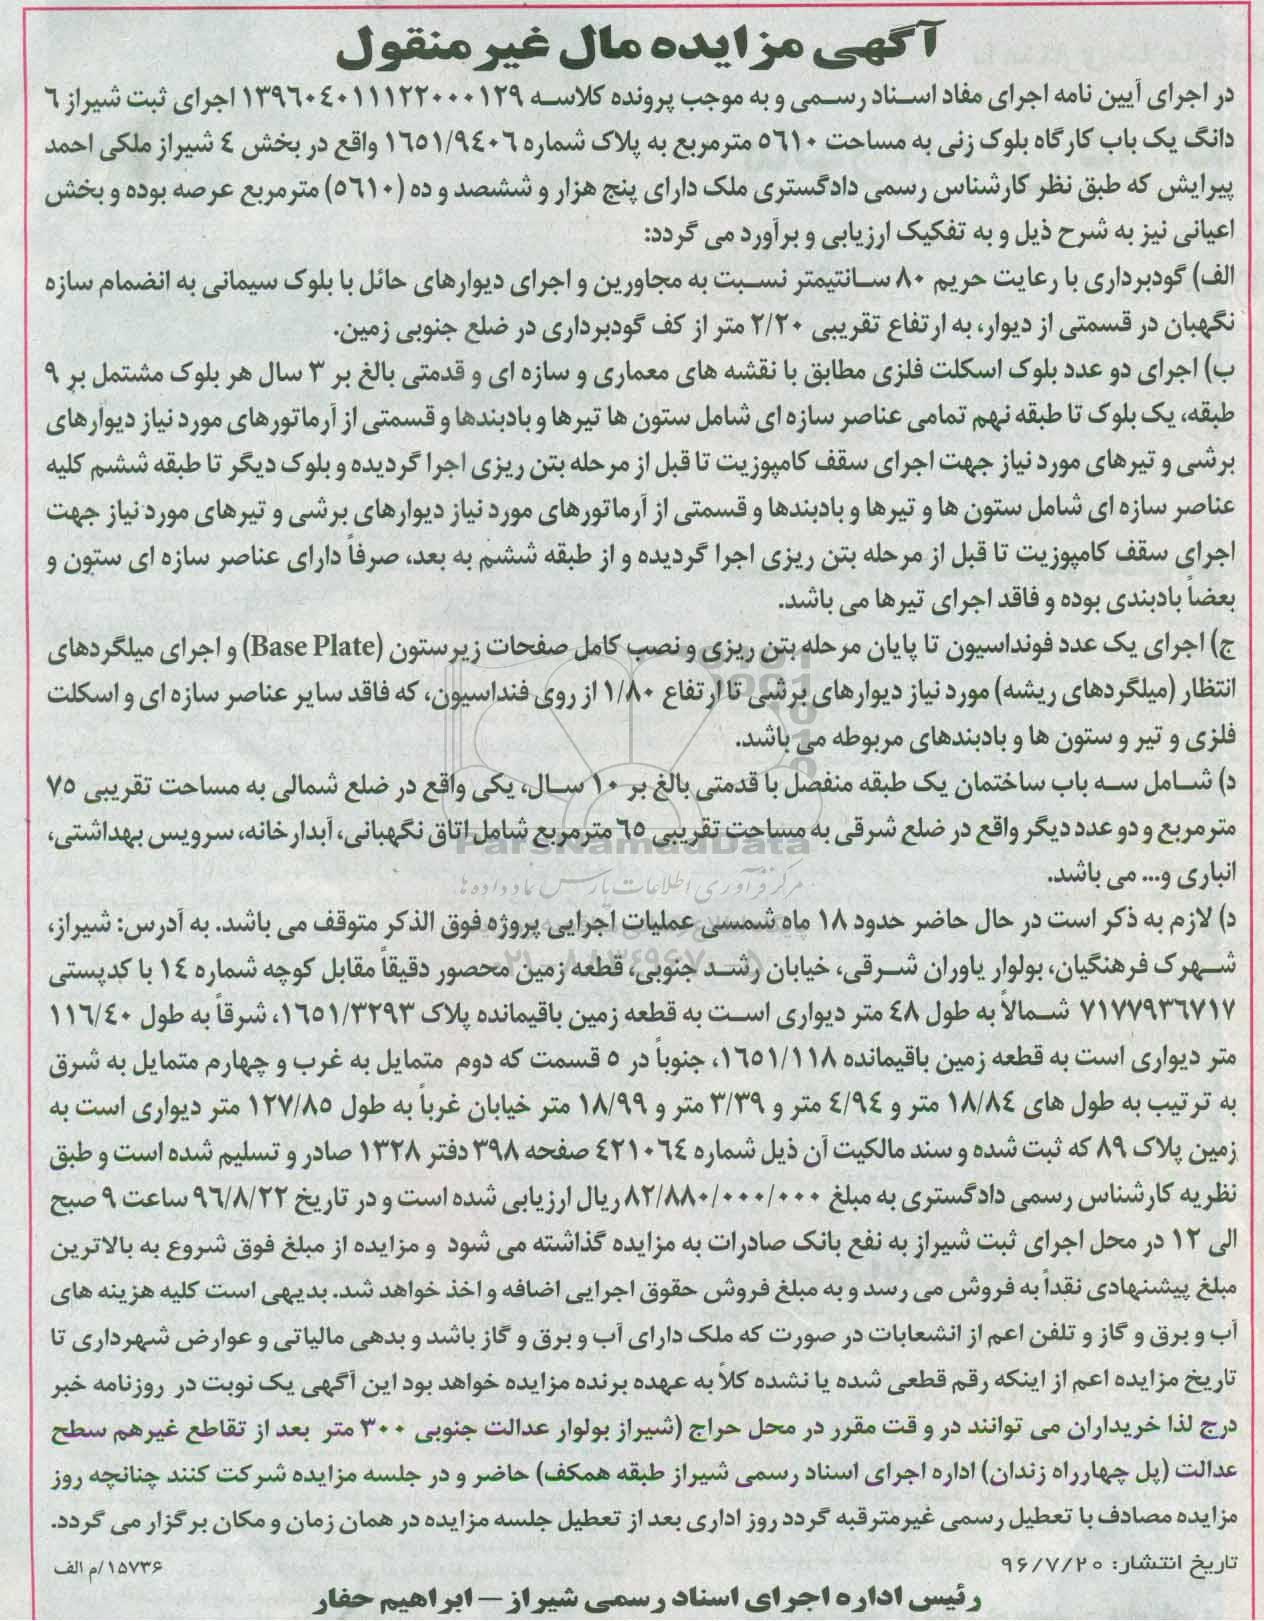 آگهی مزایده مال غیر منقول
در اجرای آیین نامه اجرای مفاد اسناد رسمی و به موجب پرونده کلاسه ۱۳۹۶۰۴۰۱۱۱۲۲۰۰۰۱۲۹ اجرای ثبت شیراز ۶
دانگ یک باب کارگاه بلوک زنی به مساحت ۵۶۱۰ مترمربع به پلاک شماره ۱۶۵۱/۹۴۰۶ واقع در بخش ۴ شیراز ملکی احمد
پیرایش که طبق نظر کارشناس رسمی دادگستری ملک دارای پنج هزار و ششصد و ده (۵۶۱۰) مترمربع عرصه بوده و بخش
اعیانی نیز به شرح ذیل و به تفکیک ارزیابی و برآورد می گردد:
الف) گودبرداری با رعایت حریم ۸۰ سانتیمتر نسبت به مجاورین و اجرای دیوارهای حائل با بلوک سیمانی به انضمام سازه
نگهبان در قسمتی از دیوار، به ارتفاع تقریبی ۲/۲۰ متر از کف گودبرداری در ضلع جنوبی زمین.
ب) اجرای دو عدد بلوک اسکلت فلزی مطابق با نقشه های معماری و سازه ای و قدمتی بالغ بر ۳ سال هر بلوک مشتمل بر ۹
طبقه، یک بلوک تا طبقه نهم تمامی عناصر سازه ای شامل ستون ها تیرها و بادبندها و قسمتی از آرماتورهای مورد نیاز دیوارهای
برشی و تیرهای مورد نیاز جهت اجرای سقف کامپوزیت تا قبل از مرحله بتن ریزی اجرا گردیده و بلوک دیگر تا طبقه ششم کلیه
عناصر سازه ای شامل ستون ها و تیرها و بادبندها و قسمتی از آرماتورهای مورد نیاز دیوارهای برشی و تیرهای مورد نیاز جهت
اجرای سقف کامپوزیت تا قبل از مرحله بتن ریزی اجرا گردیده و از طبقه ششم به بعد، صرفاً دارای عناصر سازه ای ستون و
بعضاً بادبندی بوده و فاقد اجرای تیرها می باشد.
ج) اجرای یک عدد فونداسیون تا پایان مرحله بتن ریزی و نصب کامل صفحات زیرستون (Base Plate) و اجرای میلگردهای
انتظار (میلگردهای ریشه) مورد نیاز دیوارهای برشی تا ارتفاع ۱/۸۰ از روی فنداسیون، که فاقد سایر عناصر سازه ای و اسکلت
فلزی و تیر و ستون ها و بادبندهای مربوطه می باشد.
د) شامل سه باب ساختمان یک طبقه منفصل با قدمتی بالغ بر ۱۰ سال، یکی واقع در ضلع شمالی به مساحت تقریبی ۷۵
مترمربع و دو عدد دیگر واقع در ضلع شرقی به مساحت تقریبی ۶۵ مترمربع شامل اتاق نگهبانی، آبدارخانه، سرویس بهداشتی،
ParsNamadData
انباری و... می باشد.
مرکز فرآوری اطلاعات پارس نماد داده ها
د) لازم به ذکر است در حال حاضر حدود ۱۸ ماه شمسی عملیات اجرایی پروژه فوق الذکر متوقف می باشد. به آدرس: شیراز،
شهرک فرهنگیان، بولوار یاوران شرقی، خیابان رشد جنوبی، قطعه زمین محصور دقیقاً مقابل کوچه شماره ۱۴ با کدپستی
۷۱۷۷۹۳۶۷۱۷ شمالاً به طول ۴۸ متر دیواری است به قطعه زمین باقیمانده پلاک ۱۶۵۱/۳۲۹۳، شرقاً به طول ۱۱۶/۴۰
متر دیواری است به قطعه زمین باقیمانده ۱۶۵۱/۱۱۸، جنوباً در ۵ قسمت که دوم متمایل به غرب و چهارم متمایل به شرق
به ترتیب به طول های ۱۸/۸۴ متر و ۴/۹۴ متر و ۳/۳۹ متر و ۱۸/۹۹ متر خیابان غرباً به طول ۱۲۷/۸۵ متر دیواری است به
زمین پلاک ۸۹ که ثبت شده و سند مالکیت آن ذیل شماره ۴۲۱۰۶۴ صفحه ۳۹۸ دفتر ۱۳۲۸ صادر و تسلیم شده است و طبق
نظریه کارشناس رسمی دادگستری به مبلغ ۸۲/۸۸۰/۰۰۰/۰۰۰ ریال ارزیابی شده است و در تاریخ ۹۶/۸/۲۲ ساعت ۹ صبح
الی ۱۲ در محل اجرای ثبت شیراز به نفع بانک صادرات به مزایده گذاشته می شود و مزایده از مبلغ فوق شروع به بالاترین
مبلغ پیشنهادی نقداً به فروش می رسد و به مبلغ فروش حقوق اجرایی اضافه و اخذ خواهد شد. بدیهی است کلیه هزینه های
آب و برق و گاز و تلفن اعم از انشعابات در صورت که ملک دارای آب و برق و گاز باشد و بدهی مالیاتی و عوارض شهرداری تا
تاریخ مزایده اعم از اینکه رقم قطعی شده یا نشده کلاً به عهده برنده مزایده خواهد بود این آگهی یک نوبت در روزنامه خبر
درج لذا خریداران می توانند در وقت مقرر در محل حراج (شیراز بولوار عدالت جنوبی ۳۰۰ متر بعد از تقاطع غیرهم سطح
عدالت (پل چهارراه زندان) اداره اجرای اسناد رسمی شیراز طبقه همکف) حاضر و در جلسه مزایده شرکت کنند چنانچه روز
مزایده مصادف با تعطیل رسمی غیرمترقبه گردد روز اداری بعد از تعطیل جلسه مزایده در همان زمان و مکان برگزار می گردد.
تاریخ انتشار: ۹۶/۷/۲۰
۱۵۷۳۶/م الف
رئیس اداره اجرای اسناد رسمی شیراز – ابراهیم حفار